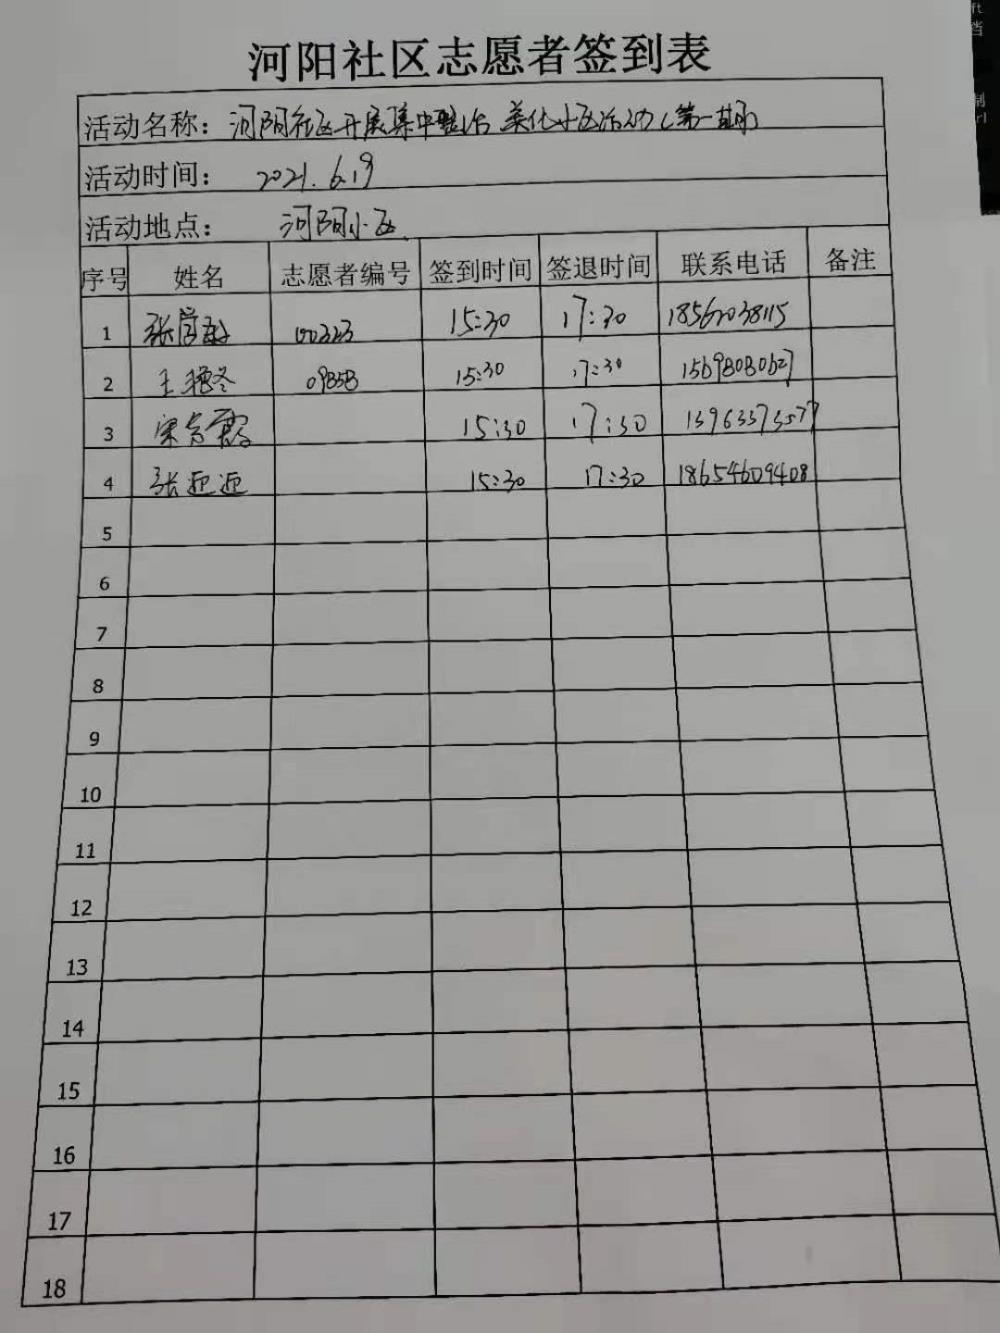 河阳社区志愿者签到表
活动名称： 河阳社区开展集中整治 美化小区活动（第一期）
活动时间： 2021.6.19
活动地点： 河阳小区
序号 姓名 志愿者编号 签到时间 签退时间 联系电话 备注
1 00323 15:30 17:30 18562038115
2 王艳冬 09858 15:30 17:30 15698080627
3 15:30 17:30 13963373577
4 张迎迎 15:30 17:30 18654609408
5
6
7
8
9
10
11
12
13
14
15
16
17
18